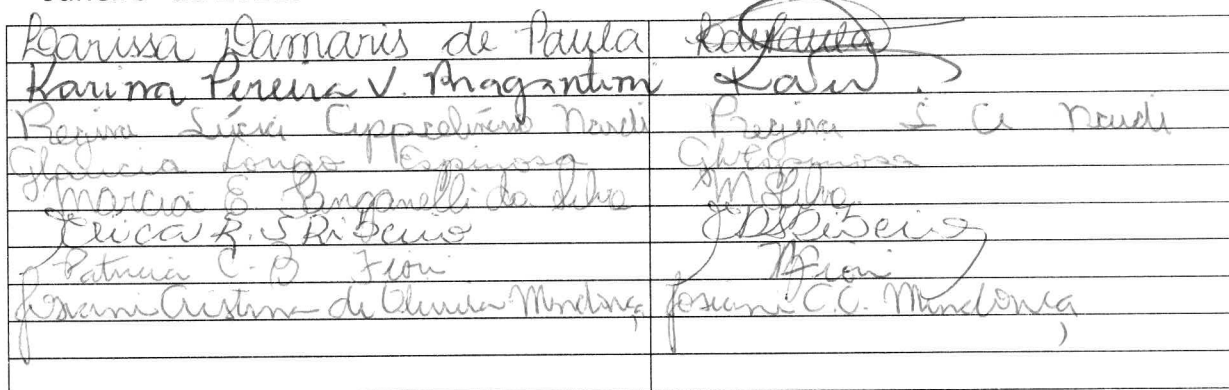 Larissa Damaris de Paula
Karina Pereira V. Bragantim Kari
Regina Lúcia Nardi Regina L C Nardi
Glaucia Longo Espinosa GLEspinosa
Marcia E. Panganelli da Silva MSilva
Erica R. S Ribeiro Ribeiro
Patricia C. B Fiori Fiori
Josiani Cristina de Oliveira Mendonça Josiani C.O. Mendonça